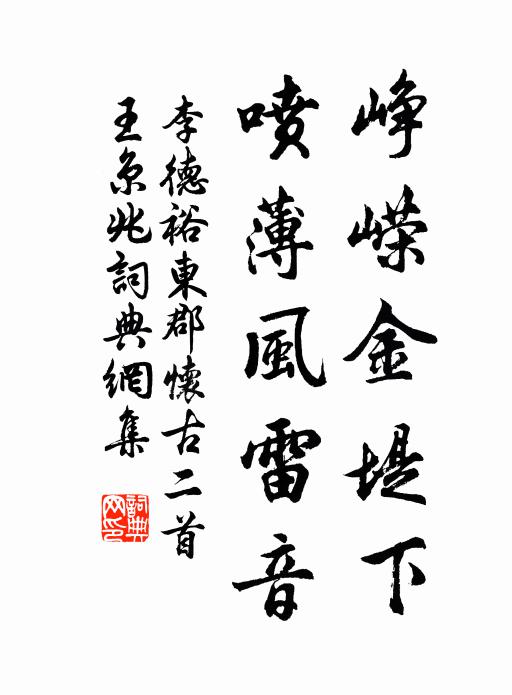 峥嵘金堤下
喷薄風雷音
李德裕東郡懷古二首
王京兆詞典網集
詞典网印